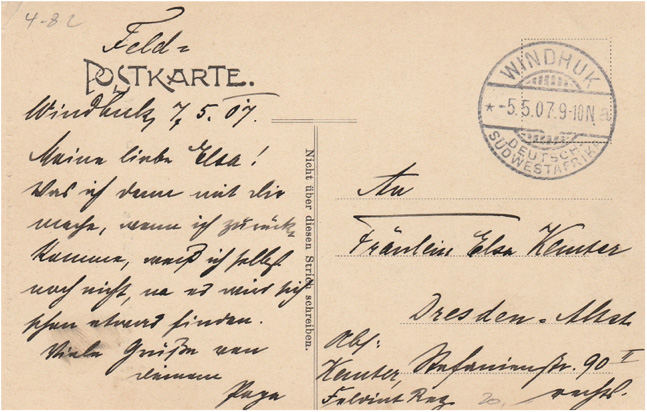 4-82
Feld-
POSTKARTE.
Windhuk, 7. 5. 07.
Meine liebe Elsa!
Was ich denn mit dir
mache, wenn ich zurück
komme, weiß ich selbst
noch nicht, na es wird sich
schon etwas finden.
Viele Grüße von
deinem
Papa
Nicht über diesen Strich schreiben.
WINDHUK
* -5.5.07.9-10N. a
DEUTSCH-
SÜDWESTAFRIKA
An
Fräulein Elsa Kemter
Dresden-Altst.
Stefanienstr. 90 II
rechts.
Abs:
Kemter,
Feldint
20.